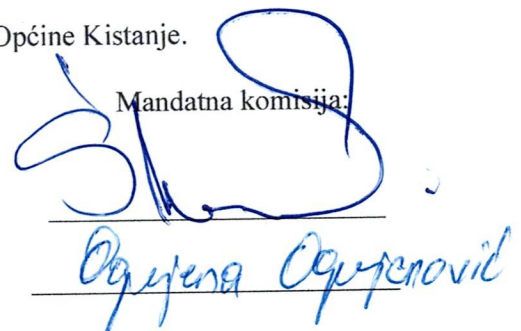 Općine Kistanje.
Mandatna komisija:
Ognjena Ognjenović